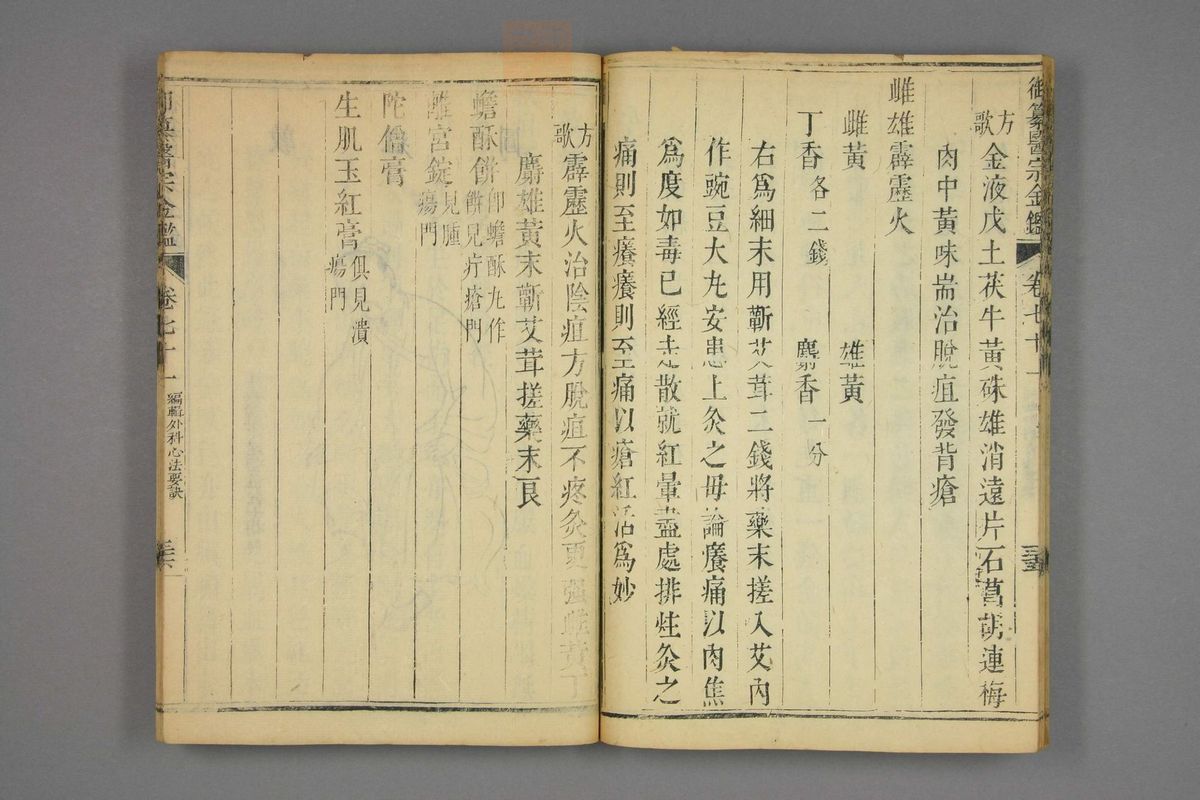 御纂醫宗金鑑 卷七十一
三五
方歌 金液戊土茯牛黃硃雄消遠片石菖胡連梅
肉中黃味耑治脫疽發背瘡
雌雄霹靂火
雌黃 雄黃
丁香各二錢 麝香一分
右爲細末用蘄艾茸二錢將藥末搓入艾內
作豌豆大丸安患上灸之毋論癢痛以肉焦
爲度如毒已經走散就紅暈盡處排炷灸之
痛則至癢癢則至痛以瘡紅活爲妙
方歌 霹靂火治陰疽方脫疽不疼灸更强雌黃丁
麝雄黃末蘄艾茸搓藥末良
蟾酥餅 卽蟾酥丸作
餅見疔瘡門
離宮錠 見腫
瘍門
陀僧膏
生肌玉紅膏 俱見潰
瘍門
御纂醫宗金鑑 卷七十一 編輯外科心法要訣
三六